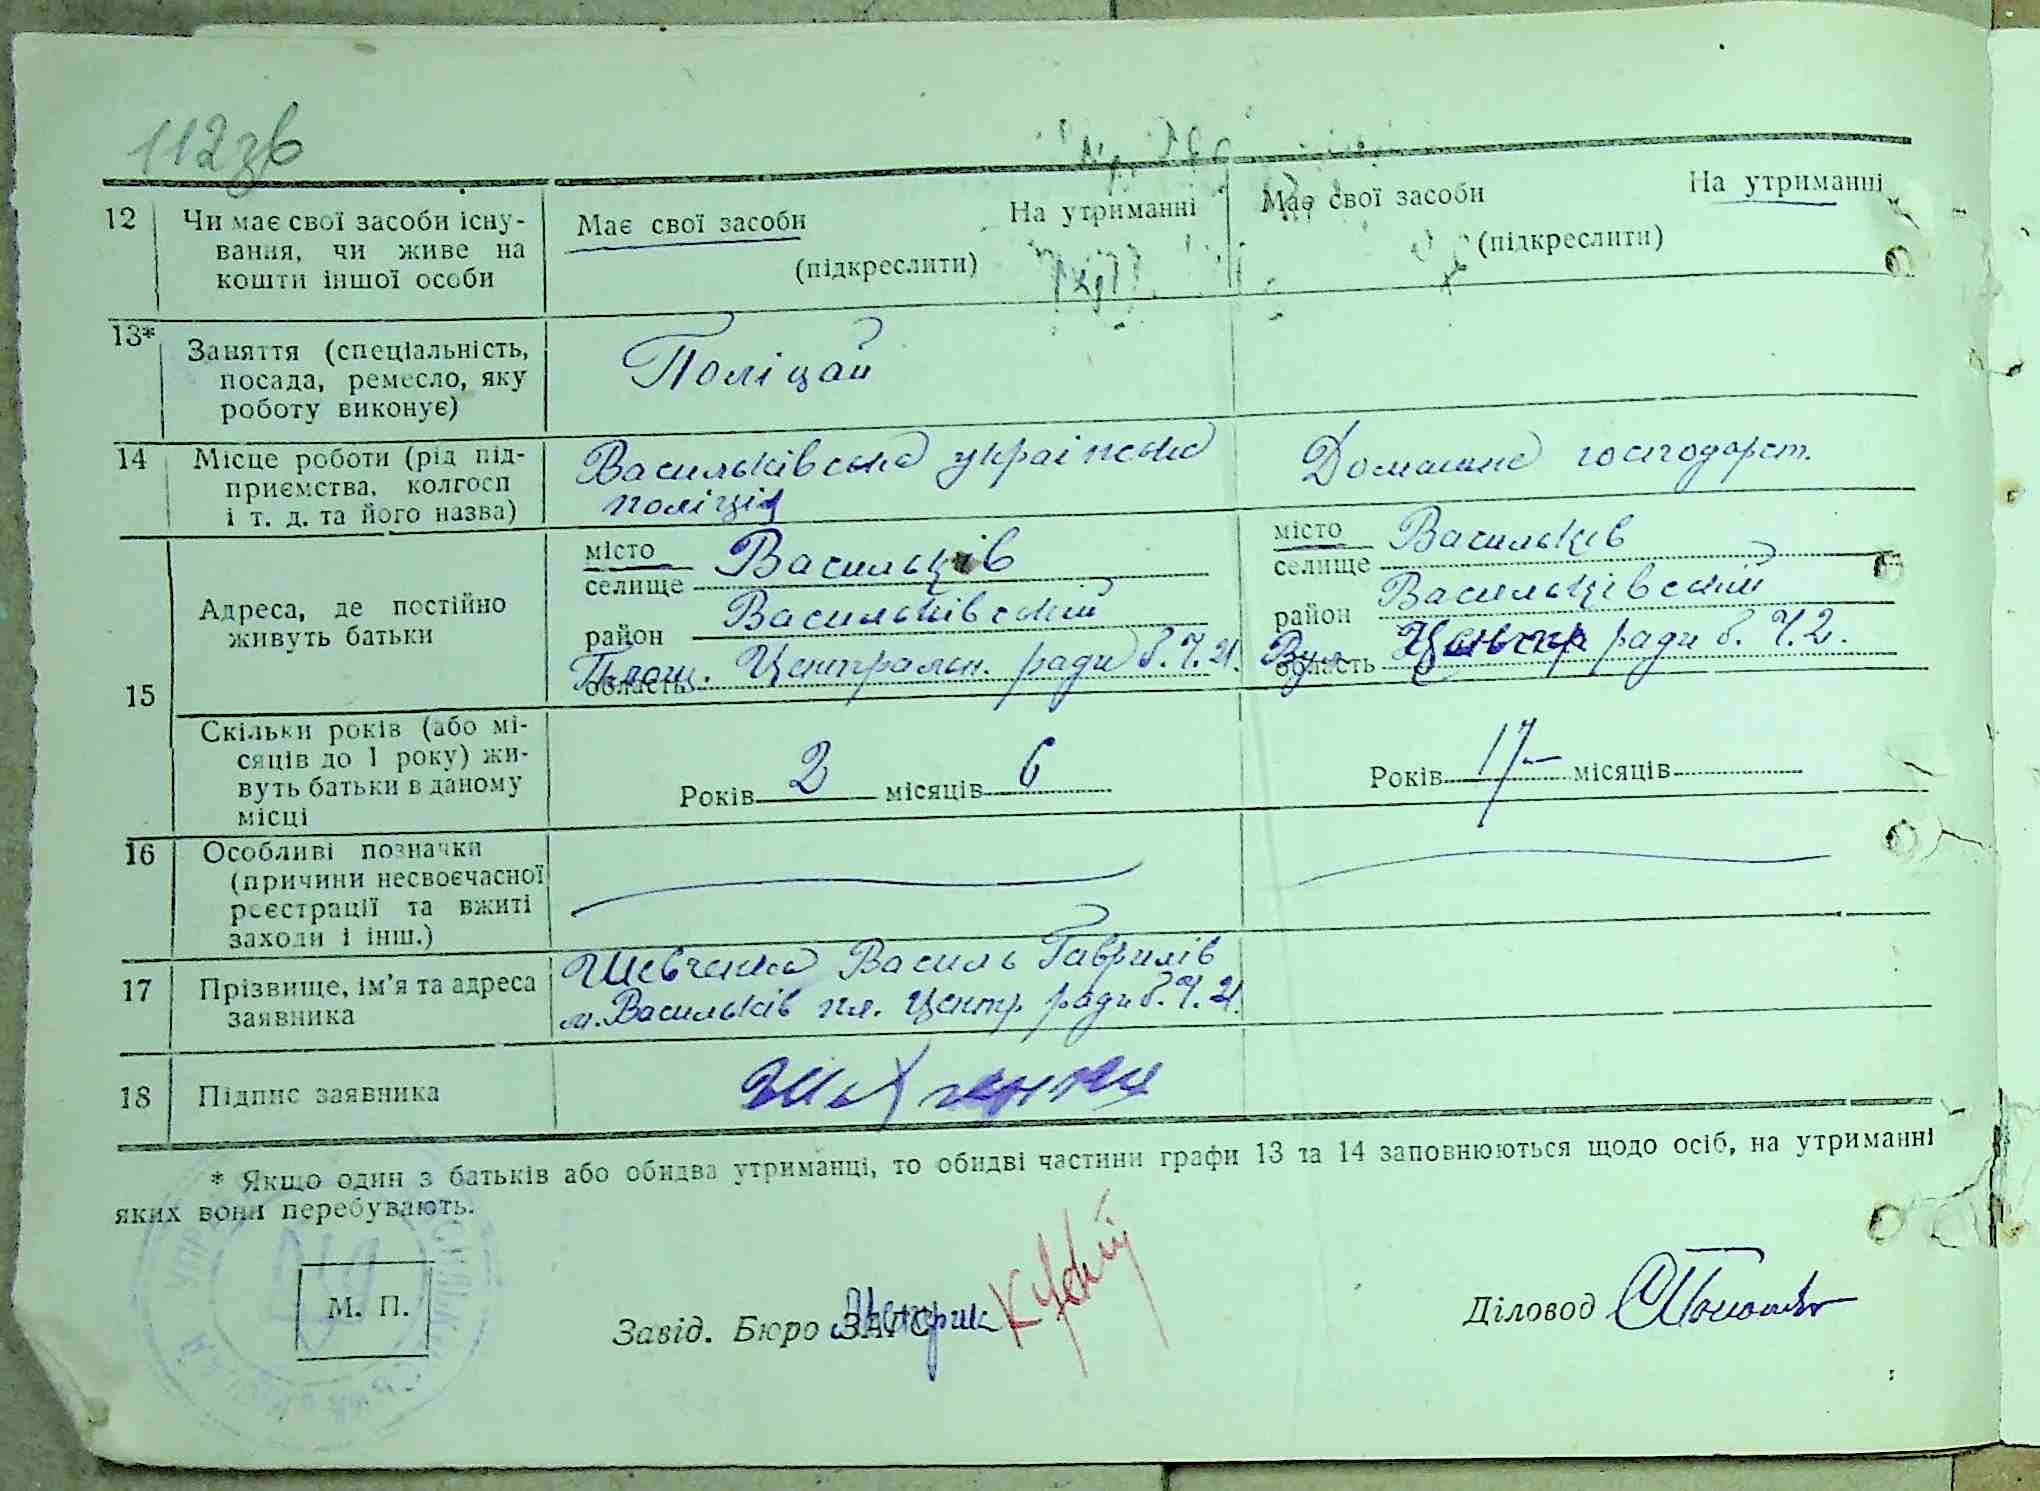 112зв
12 Чи має свої засоби існу-
вання, чи живе на
кошти іншої особи
Має свої засоби На утриманні
(підкреслити)
Має свої засоби На утриманні
(підкреслити)
13* Заняття (спеціальність,
посада, ремесло, яку
роботу виконує)
Поліцай
14 Місце роботи (рід під-
приємства, колгосп
і т. д. та його назва)
Васильківська українська
поліція
Домашнє господарст.
15
Адреса, де постійно
живуть батьки
місто Васильків
селище
район Васильківський
область Площ. Центральн. ради б. Ч. 21.
місто Васильків
селище
район Васильківський
область Вул. Центр ради б. Ч. 2.
15
Скільки років (або мі-
сяців до 1 року) жи-
вуть батьки в даному
місці
Років 2 місяців 6
Років 17 – місяців
16 Особливі позначки
(причини несвоєчасної
реєстрації та вжиті
заходи і інш.)
17 Прізвище, ім'я та адреса
заявника
Шевченко Василь Гаврилів
м. Васильків пл. Центр ради б. Ч. 21.
18 Підпис заявника
* Якщо один з батьків або обидва утриманці, то обидві частини графи 13 та 14 заповнюються щодо осіб, на утриманні
яких вони перебувають.
М. П.
Завід. Бюро ЗАГС
Діловод